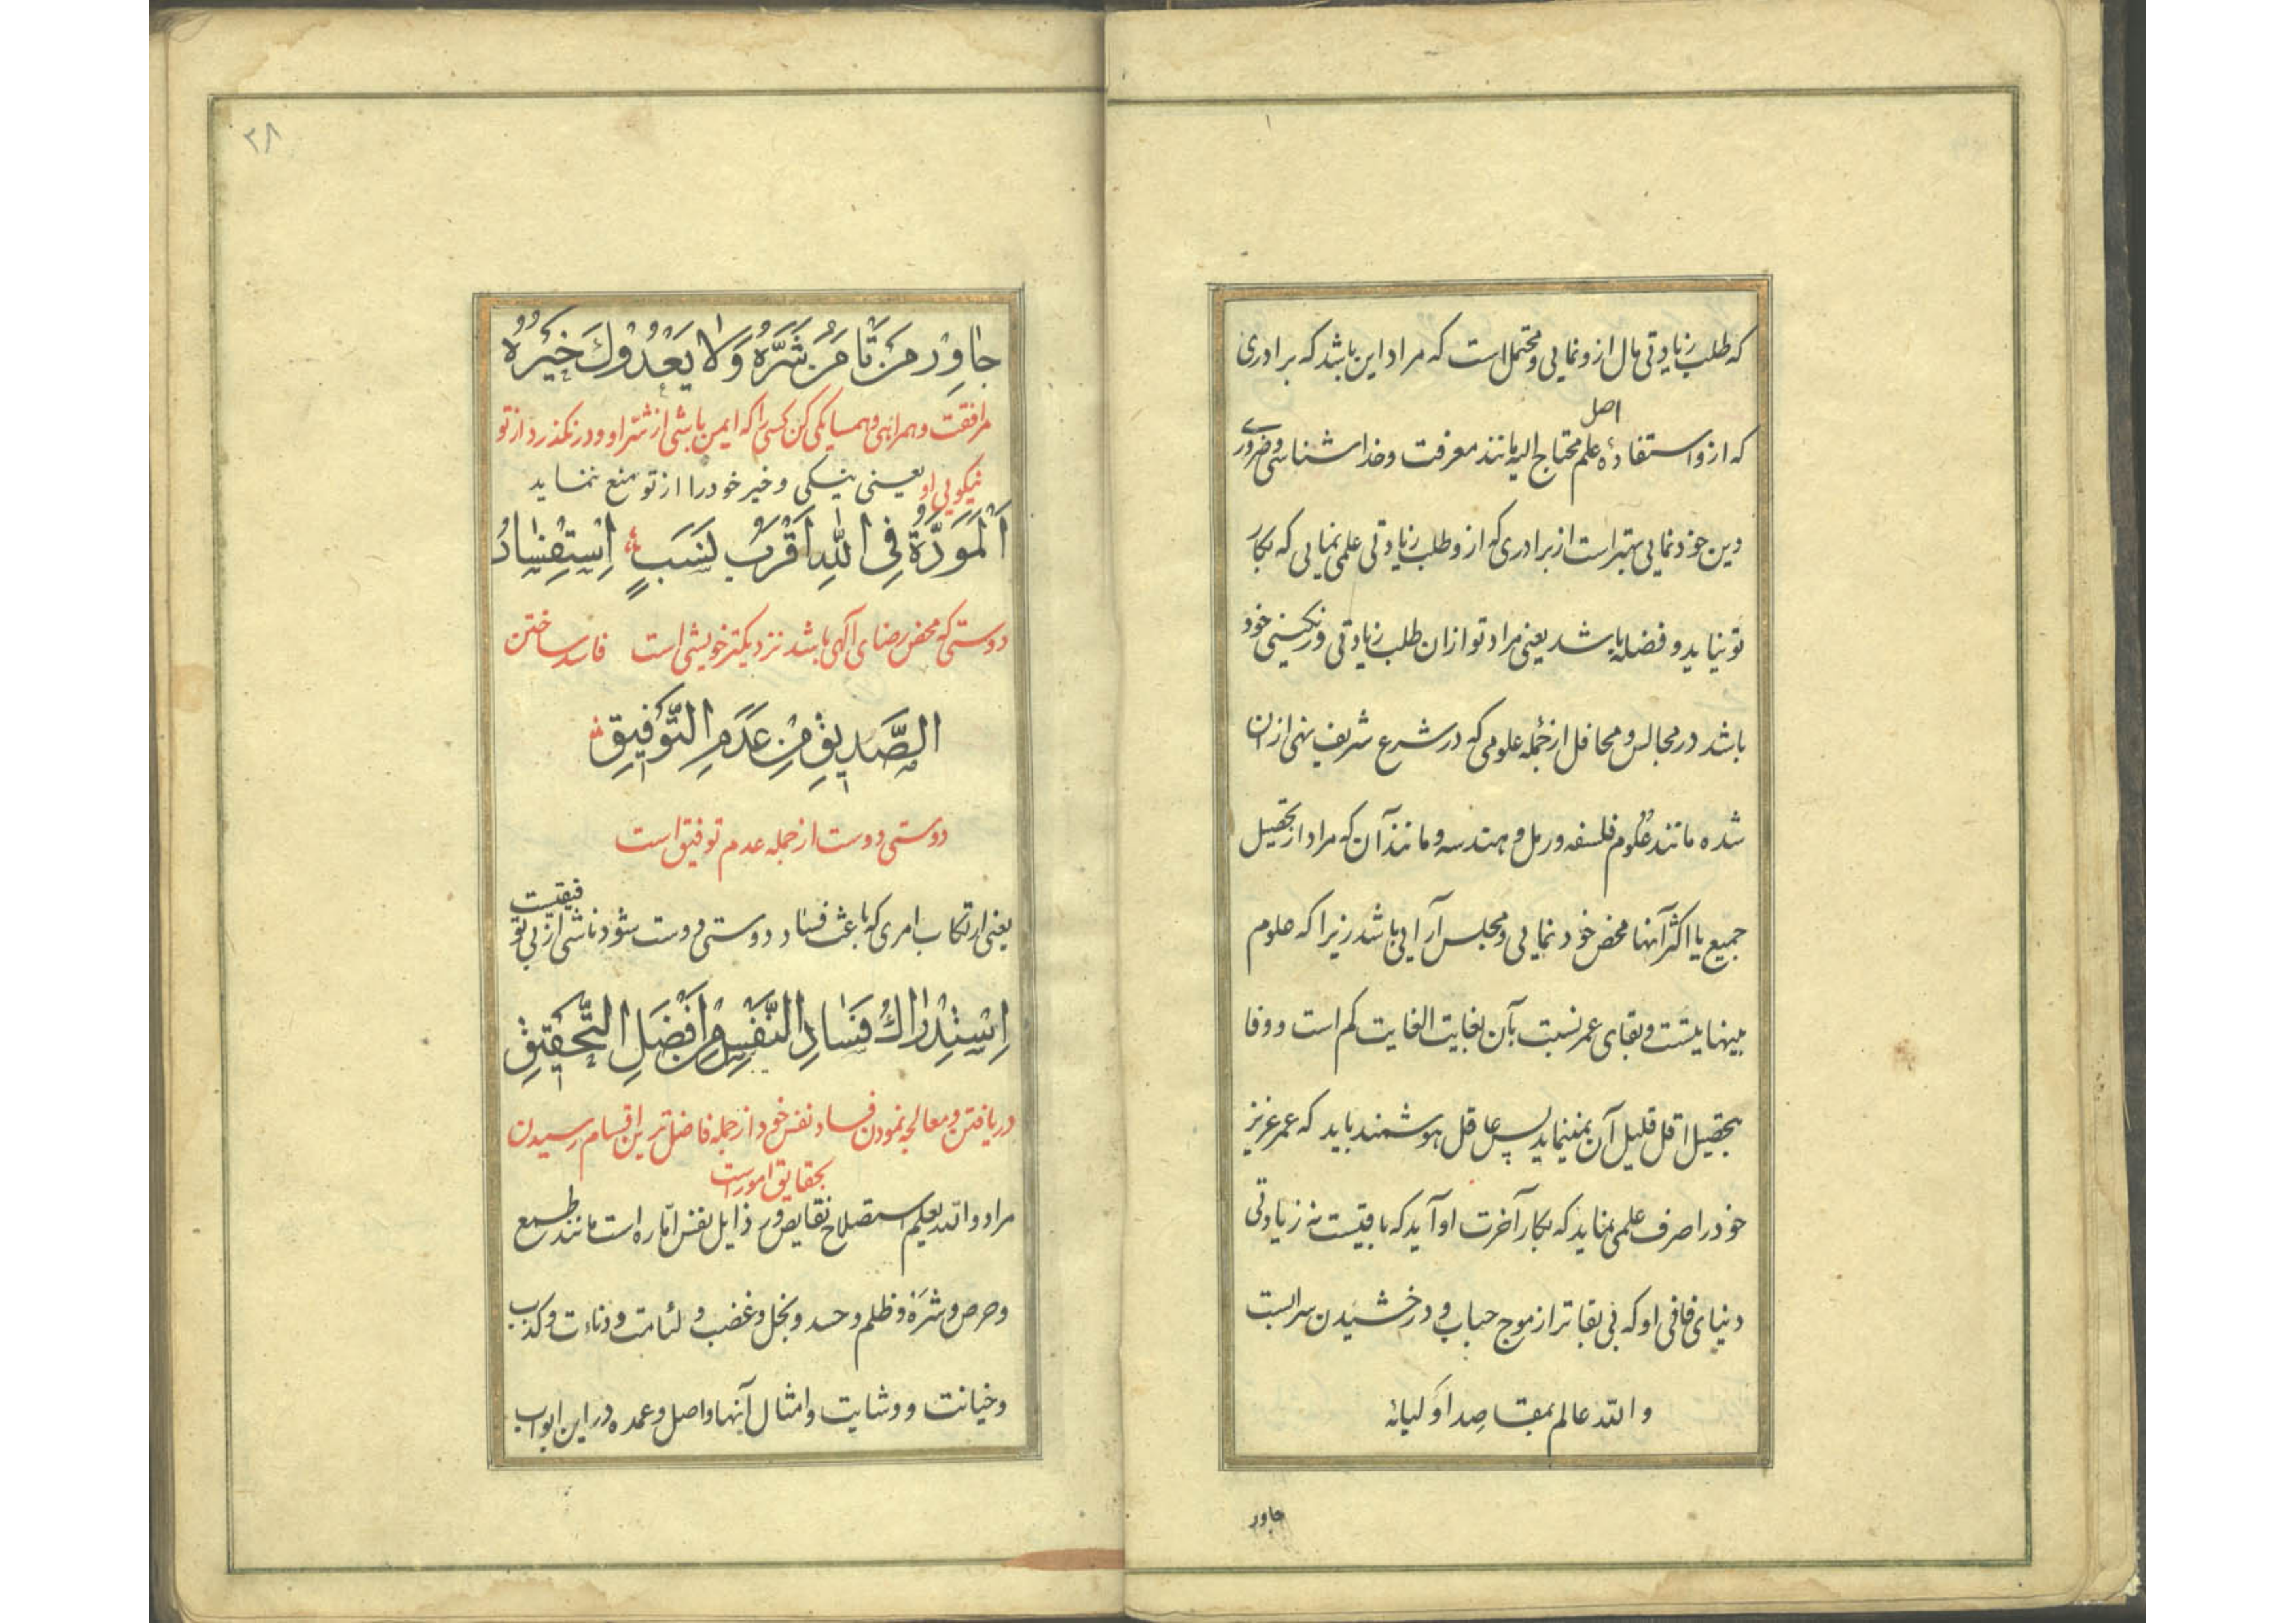 که طلب زیادتی مال ازو نمایی و محتمل است که مراد این باشد که برادری
اصل
که ازو استفادهٔ علم محتاج الیه مانند معرفت و خداشناسی و ضروری
دین خود نمایی بهتر است از برادری که ازو طلب زیادتی علمی نمایی که بکار
تو نیاید و فضله باشد یعنی مراد تو ازان طلب زیادتی و رنگینی خود
باشد در مجالس و محافل از جمله علومی که در شرع شریف نهی ازان
شده مانند علوم فلسفه و رمل و هندسه و مانند آن که مراد از تحصیل
جمیع یا اکثر آنها محض خود نمایی و مجلس آرایی باشد زیرا که علوم
بینهایتست و بقای عمر نسبت بآن بغایت الغایت کم است و وفا
بتحصیل اقل قلیل آن نمینماید پس عاقل هوشمند باید که عمر عزیز
خود را صرف علمی نماید که بکار آخرت او آید که باقیست نه زیادتی
دنیای فانی او که بی بقاتر از موج حباب و درخشیدن سرابست
والله عالم بمقاصد اولیائه
جاور
۳۸
جَاوِرْ مَنْ تَأْمَنُ شَرَّهُ وَلَا يَعْدُوكَ خَيْرُهُ
مرافقت و همراهی و همسایگی کن کسی را که ایمن باشی از شرّ او و در نگذرد از تو
نیکویی او یعنی نیکی و خیر خود را از تو منع ننماید
اَلْمَوَدَّةُ فِي اللهِ اَقْرَبُ نَسَبٍ اِسْتِفْسَادُ
دوستی که محض رضای آلهی باشد نزدیکتر خویشی است فاسد ساختن
الصَّدِيقِ مِنْ عَدَمِ التَّوْفِيقِ
دوستی دوست از جمله عدم توفیق است
یعنی ارتکاب امری که باعث فساد دوستی دوست شود ناشی از بی تو
فیقیست
اِسْتِدْرَاكُ فَسَادِ النَّفْسِ مِنْ اَفْضَلِ التَّحْقِيقِ
دریافتن و معالجه نمودن فساد نفس خود از جمله فاضل ترین اقسام رسیدن
بحقایق امور است
مراد والله یعلم استصلاح نقایص و رذایل نفس امّاره است مانند طمع
و حرص و شَرَه و ظلم و حسد و بخل و غضب و لئامت و دنائت و کذب
و خیانت و وشایت و امثال آنها و اصل و عمده در این ابواب